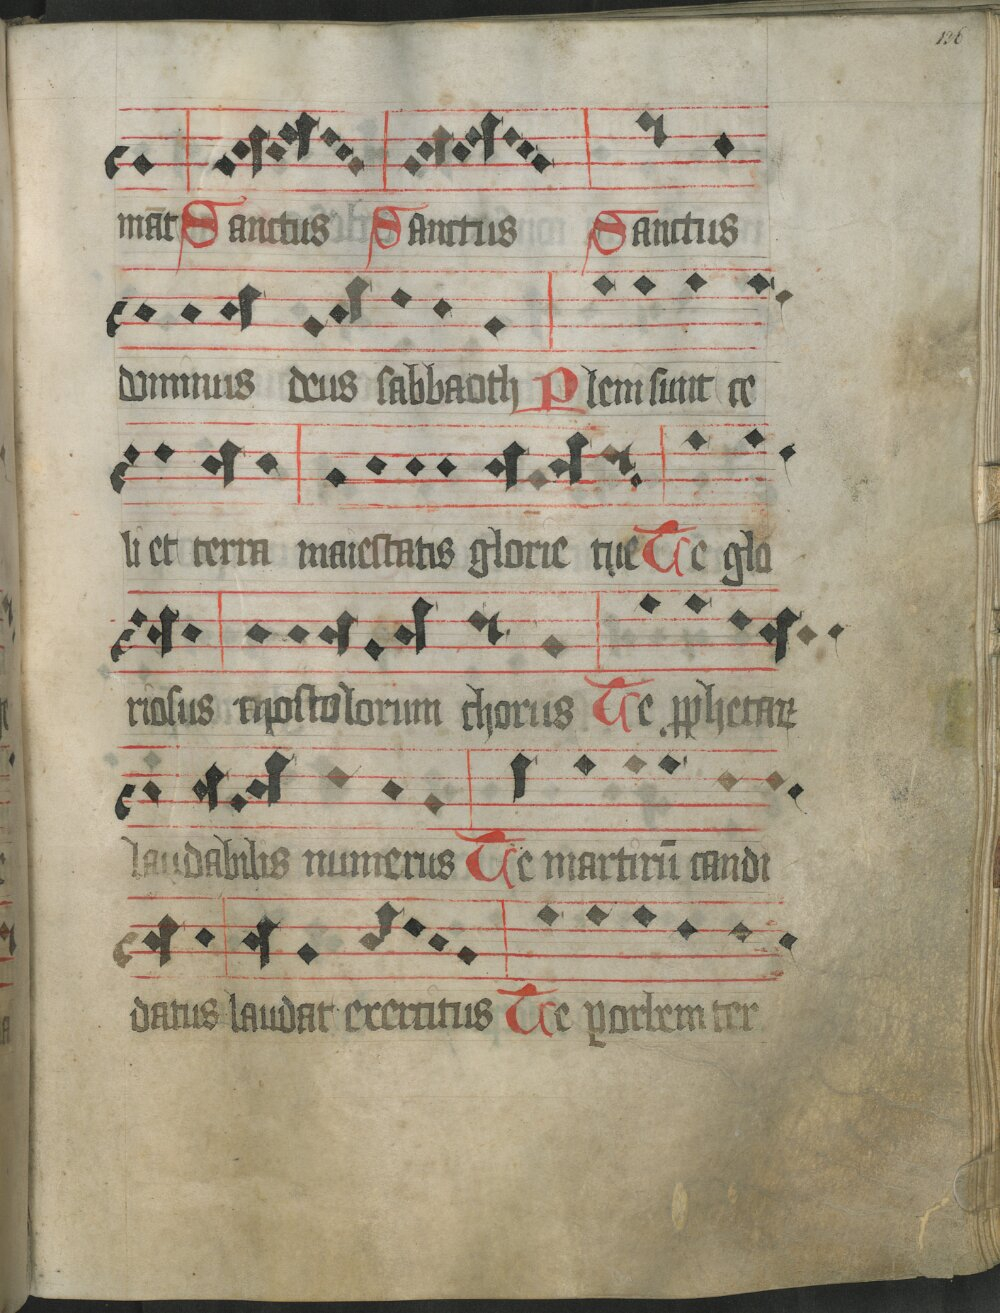 126
māt Sanctus Sanctus Sanctus
dominus deus sabbaoth Pleni sunt ce
li et terra maiestatis glorie tue Te glo
riosus apostolorum chorus Te pphetaꝝ
laudabilis numerus Te martirū candi
datus laudat exercitus Te p orbem ter